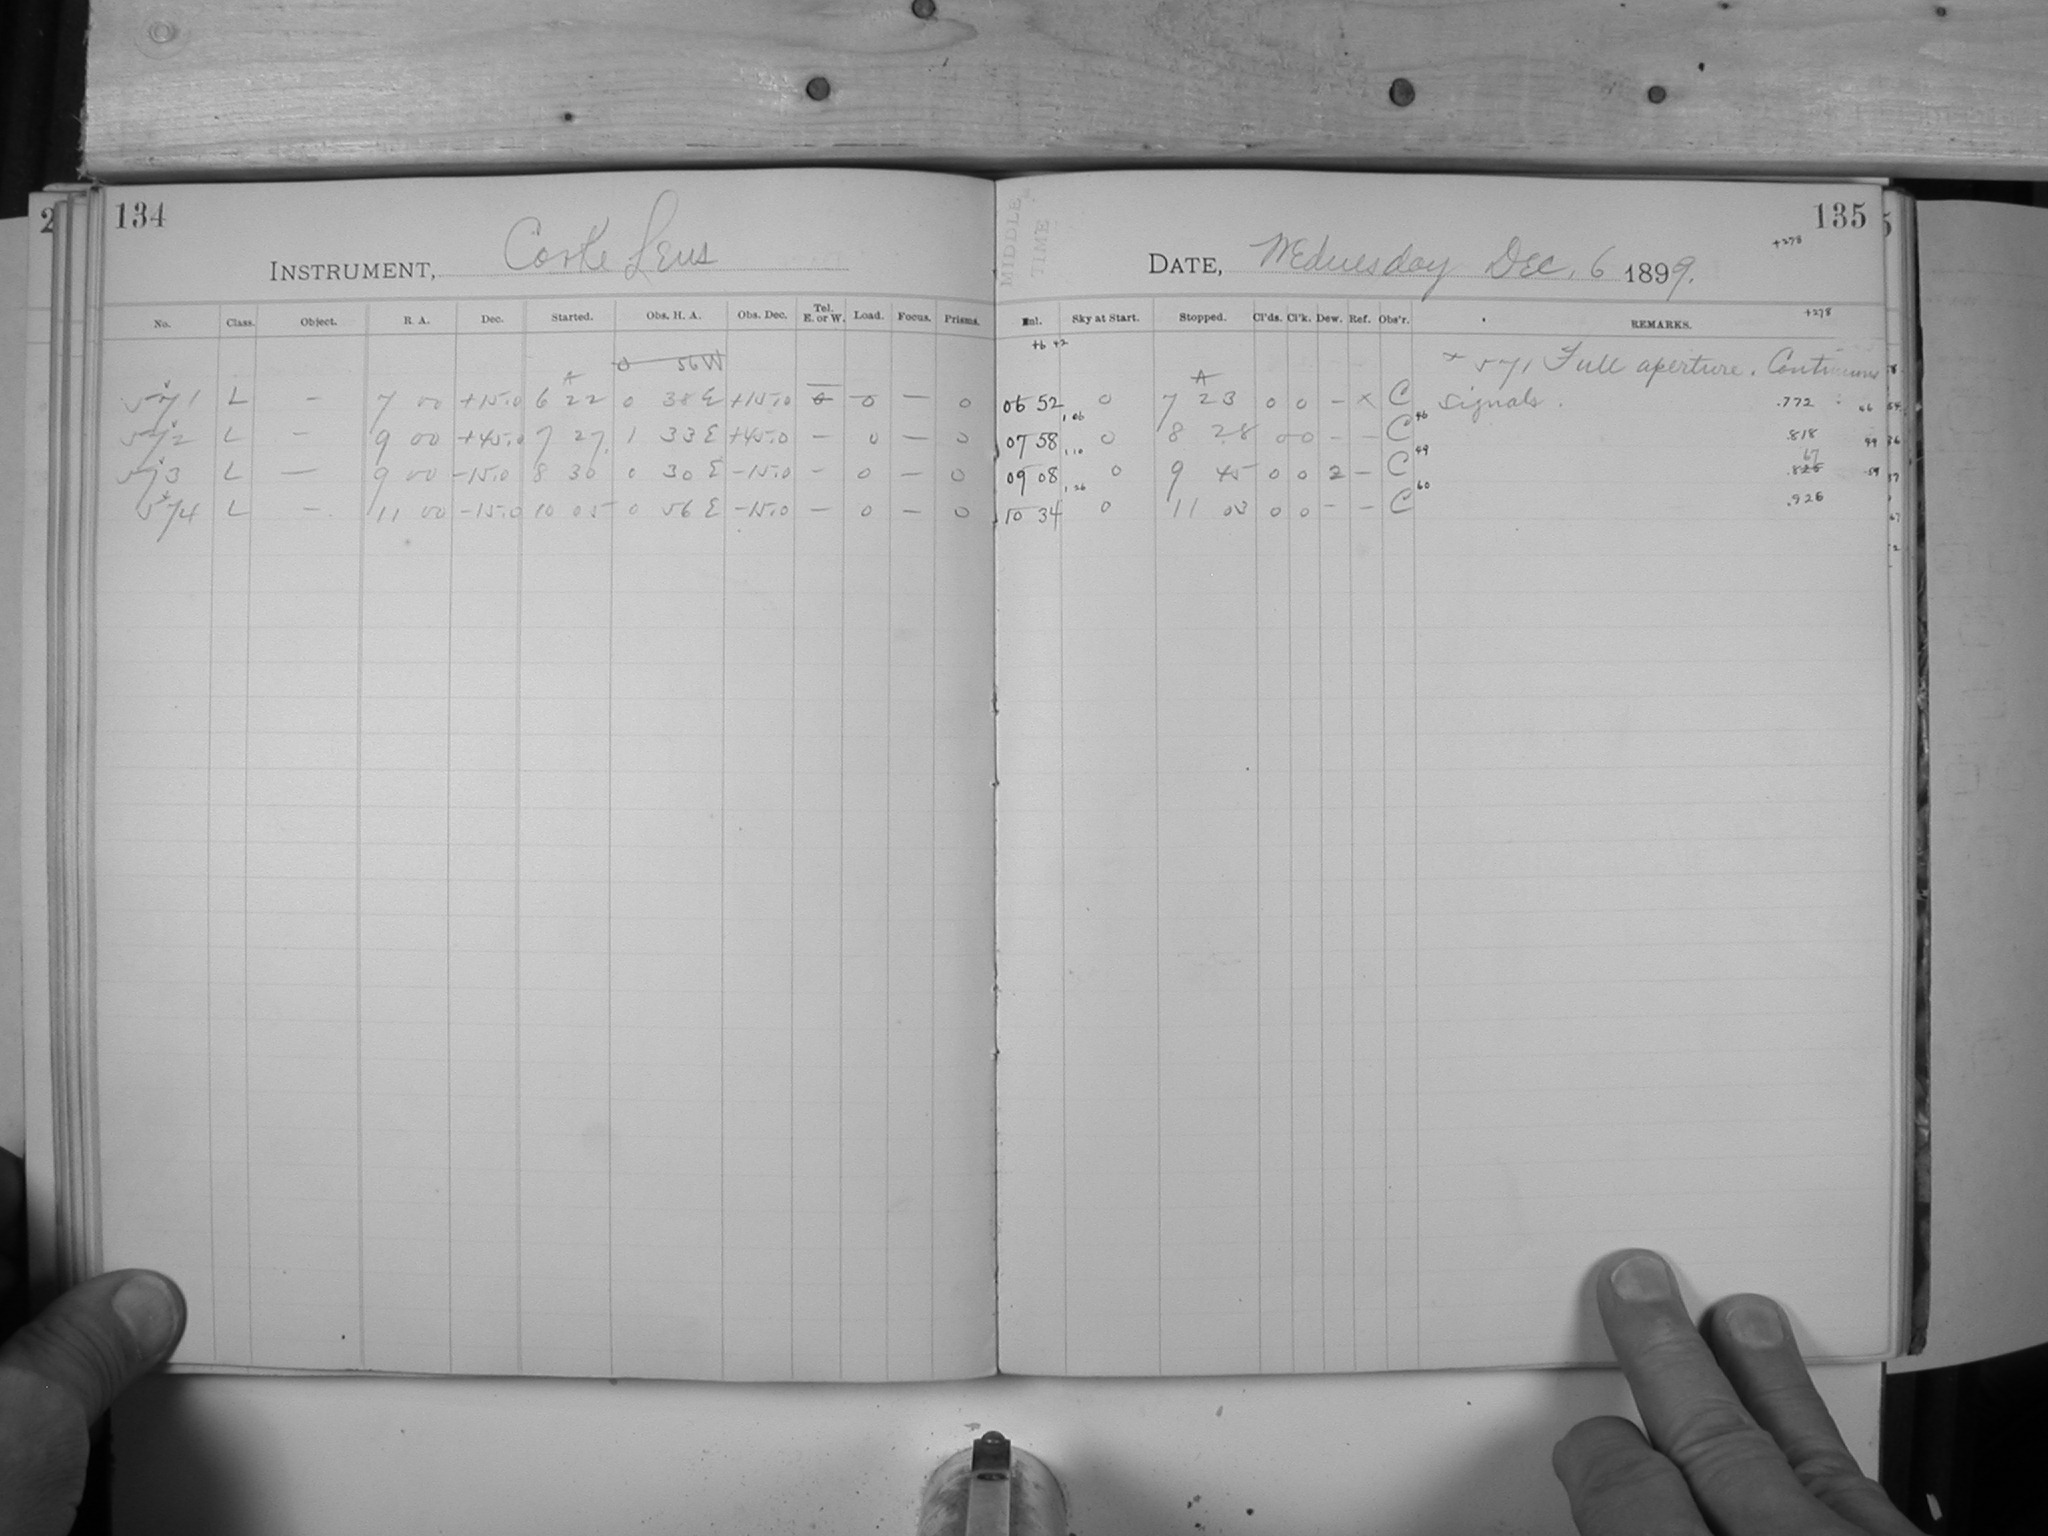 134
INSTRUMENT, Cooke Lens
No. Class. Object. R. A. Dec. Started. Obs. H. A. Obs. Dec. Tel. E. or W. Load. Focus. Prisms.
0 56 W
A
571 L — 7 00 +15.0 6 22 0 38 E +15.0 — 0 — 0
572 L — 9 00 +45.0 7 27 1 33 E +45.0 — 0 — 0
573 L — 9 00 −15.0 8 30 0 30 E −15.0 — 0 — 0
574 L — 11 00 −15.0 10 05 0 56 E −15.0 — 0 — 0
MIDDLE
TIME
135
+278
DATE, Wednesday Dec. 6 1899.
Sky at Start. Stopped. Cl'ds. Cl'k. Dew. Ref. Obs'r. REMARKS. +278
+6 42
A
× 571 Full aperture. Continuous
06 52 0 7 23 0 0 — × C signals. .772
1,06 46
07 58 0 8 28 0 0 — — C .818
1,10 49
67
09 08 0 9 45 0 0 2 — C
1,26 60
10 34 0 11 03 0 0 — — C .926